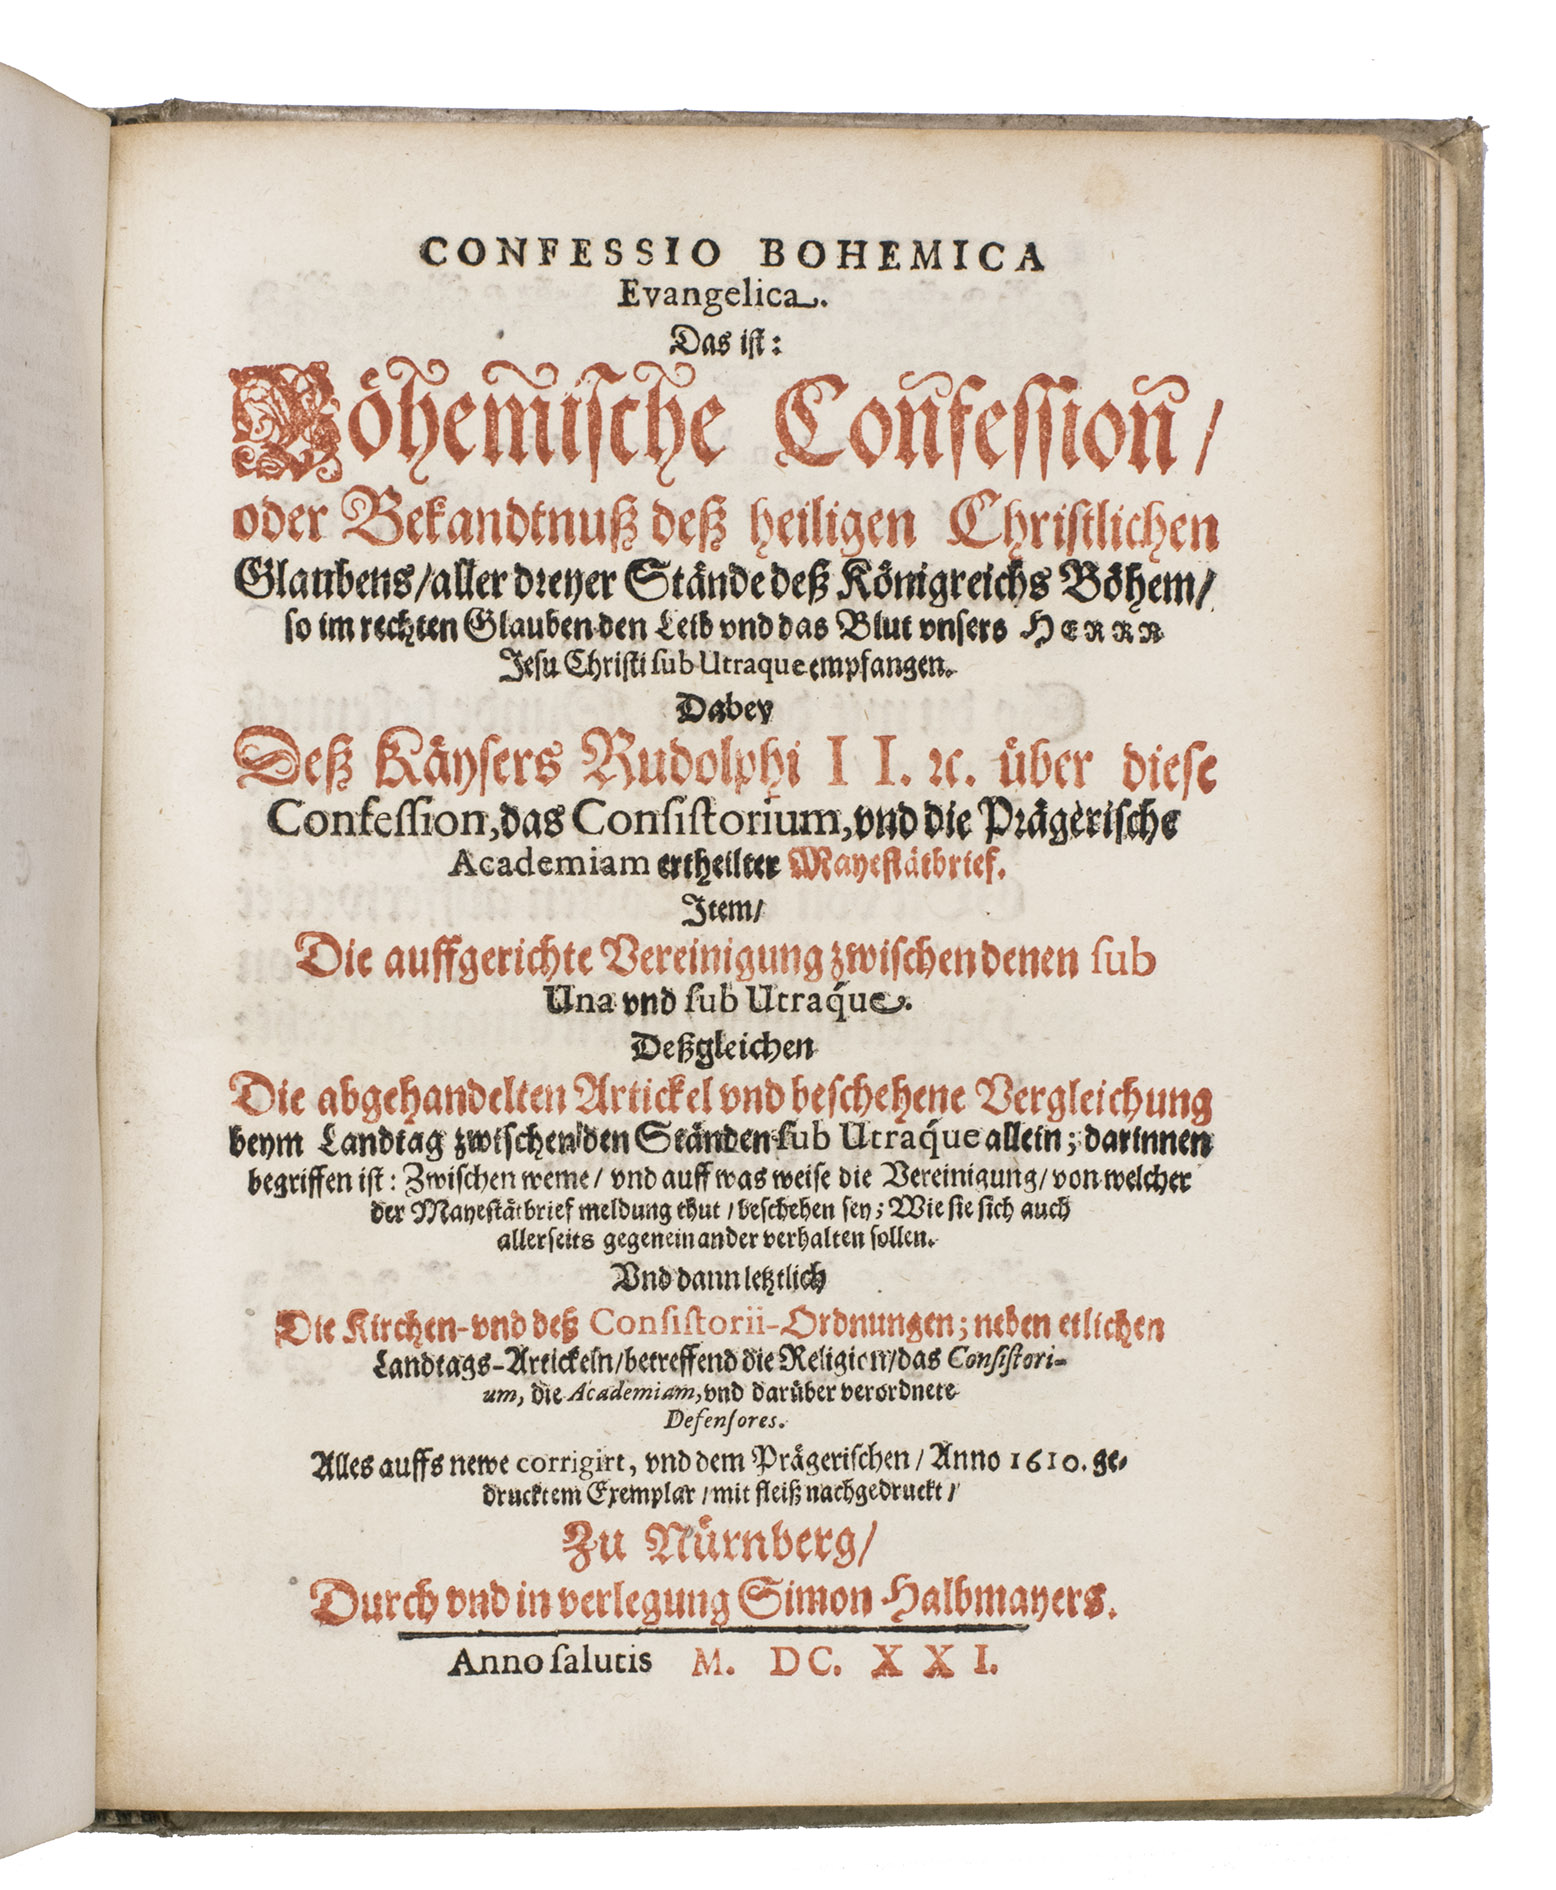 CONFESSIO BOHEMICA
Evangelica.
Das ist:
Böhemische Confession/
oder Bekandtnuß deß heiligen Christlichen
Glaubens/aller dreyer Stände deß Königreichs Böhem/
so im rechten Glauben den Leib vnd das Blut vnsers HERRN
Jesu Christi sub Utraque empfangen.
Dabey
Deß Käysers Rudolphi II. ꝛc. über diese
Confession, das Consistorium, vnd die Prägerische
Academiam ertheilter Mayestätbrief.
Item/
Die auffgerichte Vereinigung zwischen denen sub
Una vnd sub Utraq́ue.
Deßgleichen
Die abgehandelten Artickel vnd beschehene Vergleichung
beym Landtag zwischen den Ständen sub Utraq́ue allein; darinnen
begriffen ist: Zwischen weme/ vnd auff was weise die Vereinigung/ von welcher
der Mayestätbrief meldung thut/ beschehen sey; Wie sie sich auch
allerseits gegeneinander verhalten sollen.
Vnd dann letztlich
Die Kirchen-vnd deß Consistorii-Ordnungen; neben etlichen
Landtags-Artickeln/betreffend die Religion/das Consistori-
um, die Academiam, vnd darüber verordnete
Defensores.
Alles auffs newe corrigirt, vnd dem Prägerischen/ Anno 1610. ge-
drucktem Exemplar/ mit fleiß nachgedruckt/
Zu Nürnberg/
Durch vnd in verlegung Simon Halbmayers.
Anno salutis M. DC. XXI.